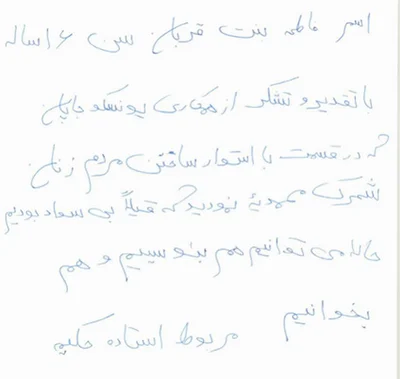 اسم فاطمه بنت قربان سن ۱۶ ساله
با تقدیر و تشکر از همکاری یونسکو جاپان
که در قسمت با استوار ساختن مردم زنان
شمرک محمودیهٔ نمودید که قبلاً بی سواد بودیم
حالا می توانیم هم بنویسیم و هم
بخوانیم
مربوط استاده حکیم